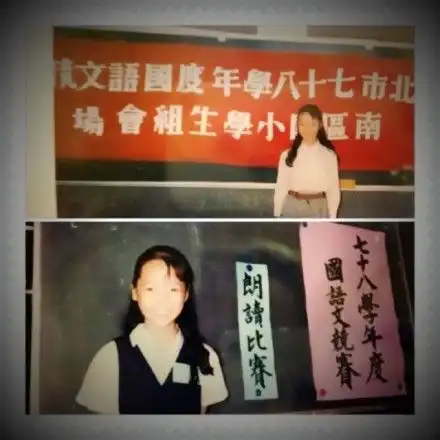 北市七十八學年度國語文
南區國小學生組會場
七十八學年度
國語文競賽
朗讀比賽